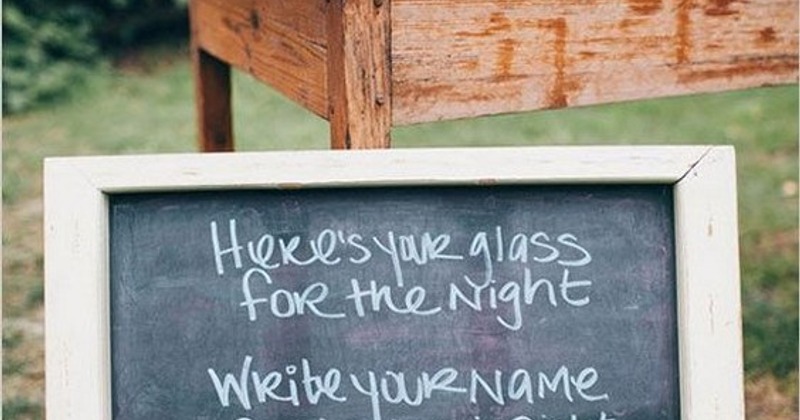 Here's your glass
for the Night
Write your Name